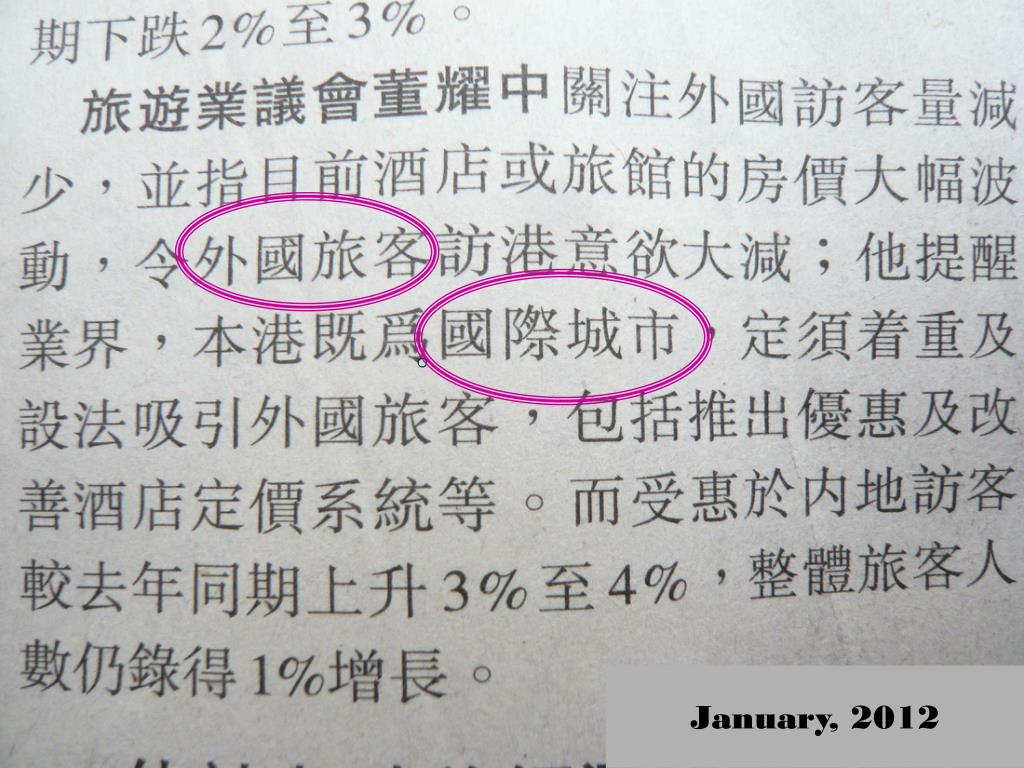 期下跌2%至3%。
旅遊業議會董耀中關注外國訪客量減
少，並指目前酒店或旅館的房價大幅波
動，令外國旅客訪港意欲大減；他提醒
業界，本港既爲國際城市，定須着重及
設法吸引外國旅客，包括推出優惠及改
善酒店定價系統等。而受惠於內地訪客
較去年同期上升3%至4%，整體旅客人
數仍錄得1%增長。
January, 2012